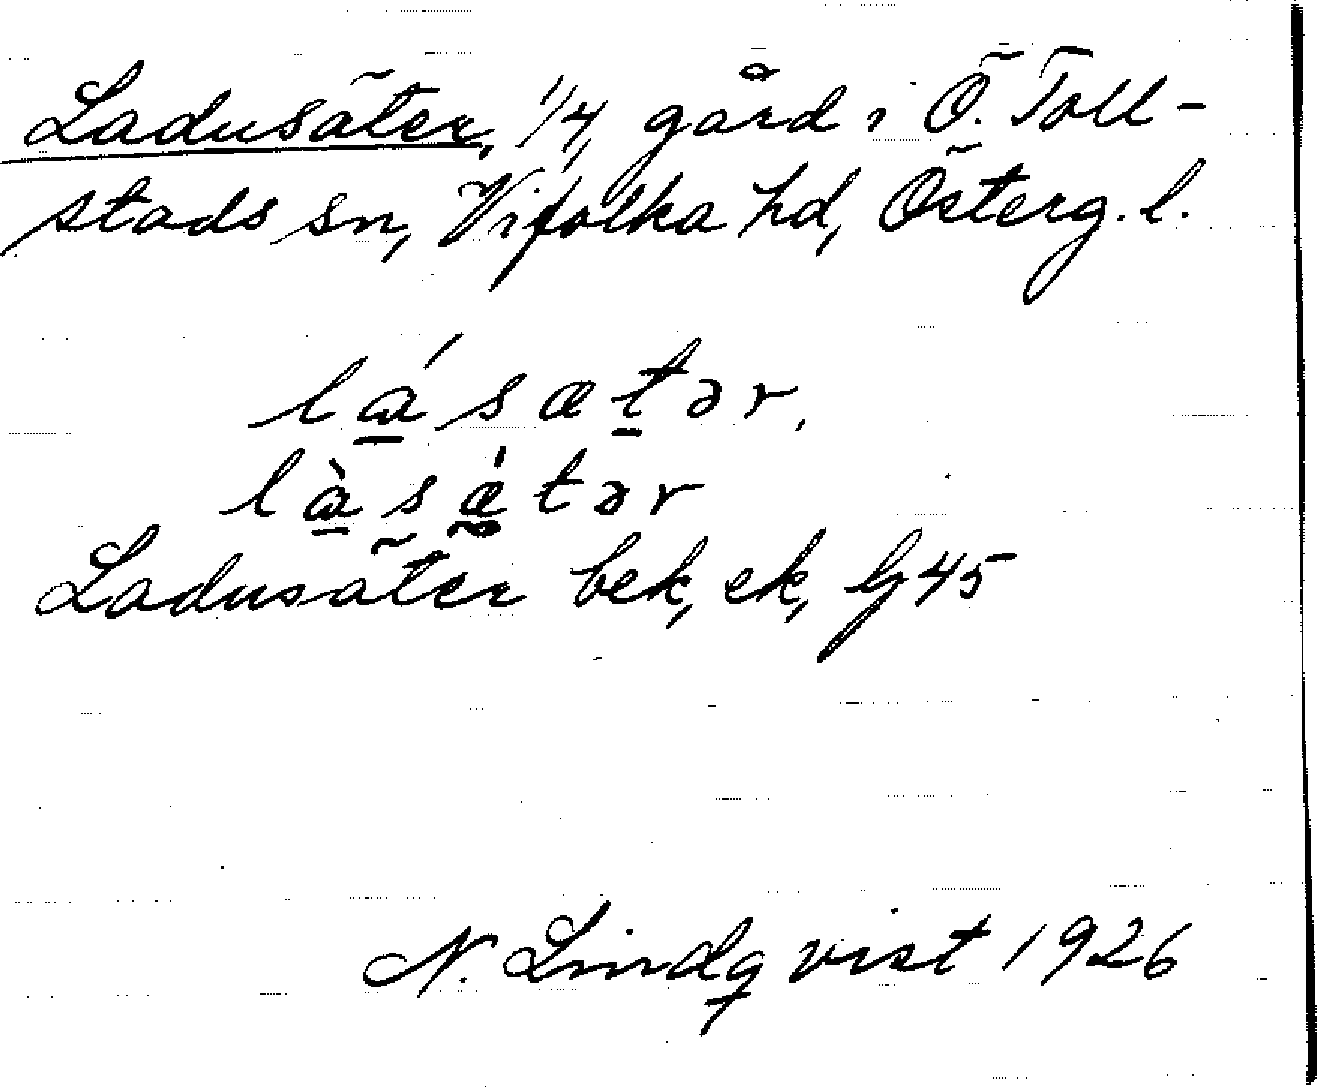 Ladusäter, 1/4, gård i Ö. Toll-
stads sn, Vifolka hd, Österg. l.
lásætər,
làsǽtər
Ladusäter bek, ek, lj 45
N. Lindqvist 1926